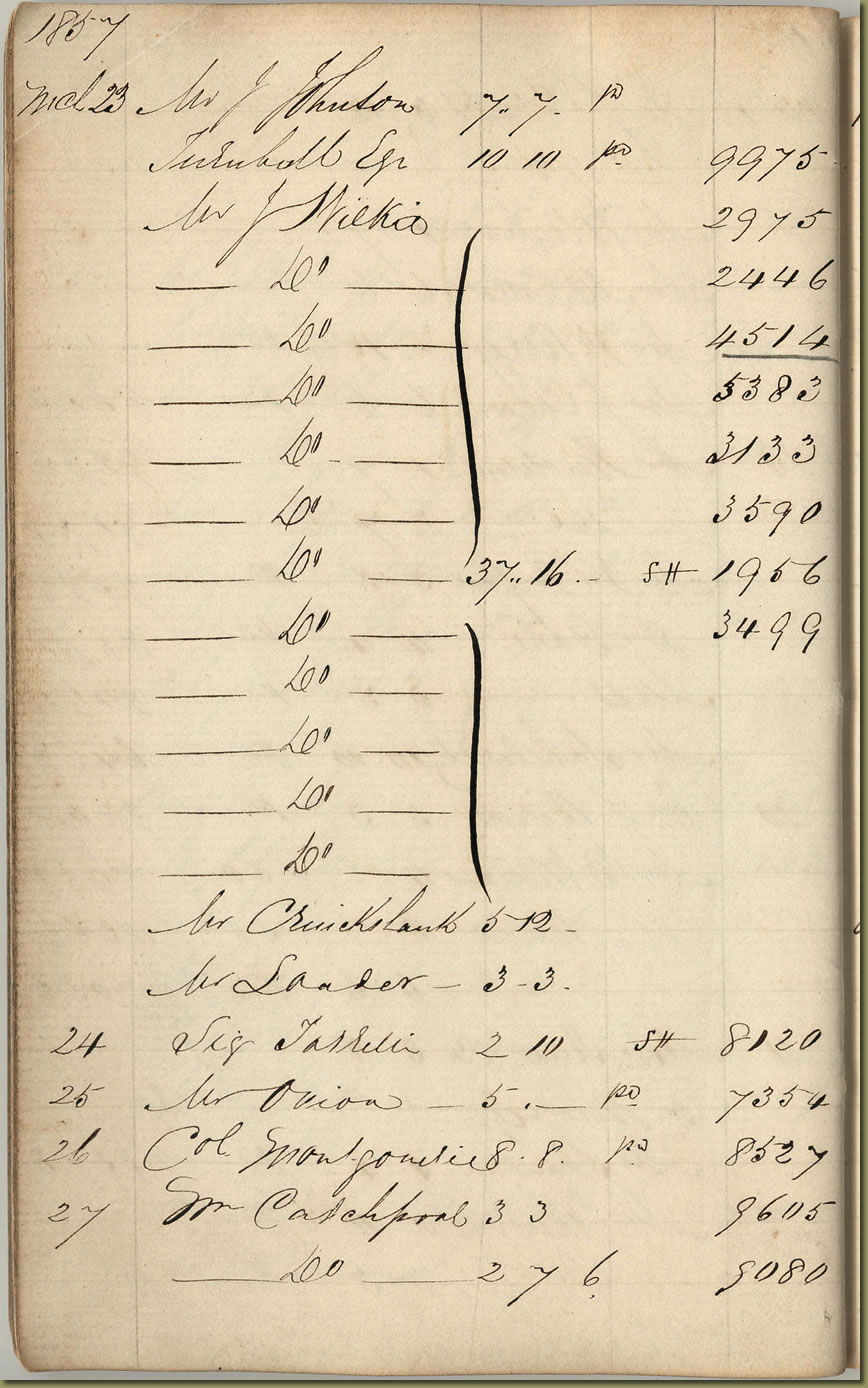 1857
Mch 23 Mr J Johnson 7.. 7. pd
Turnbull Eqr 10 10 pd 9975
Mr J Wilkie 2975
— Do — 2446
— Do — 4514
— Do — 5383
— Do - — 3133
— Do — 3590
— Do — 37.. 16. - SH 1956
— Do — 3499
— Do —
— Do —
— Do —
— Do —
Mr Cruickshank 5 12 -
Mr Lauder — 3 - 3.
24 Sig 2 10 SH 8120
25 Mr Onion — 5 . — pd 7354
26 Col. Montgomerie 8. 8. pd 8527
27 Wm Catchpool 3 3 9605
— Do — 2 7 6. 9080